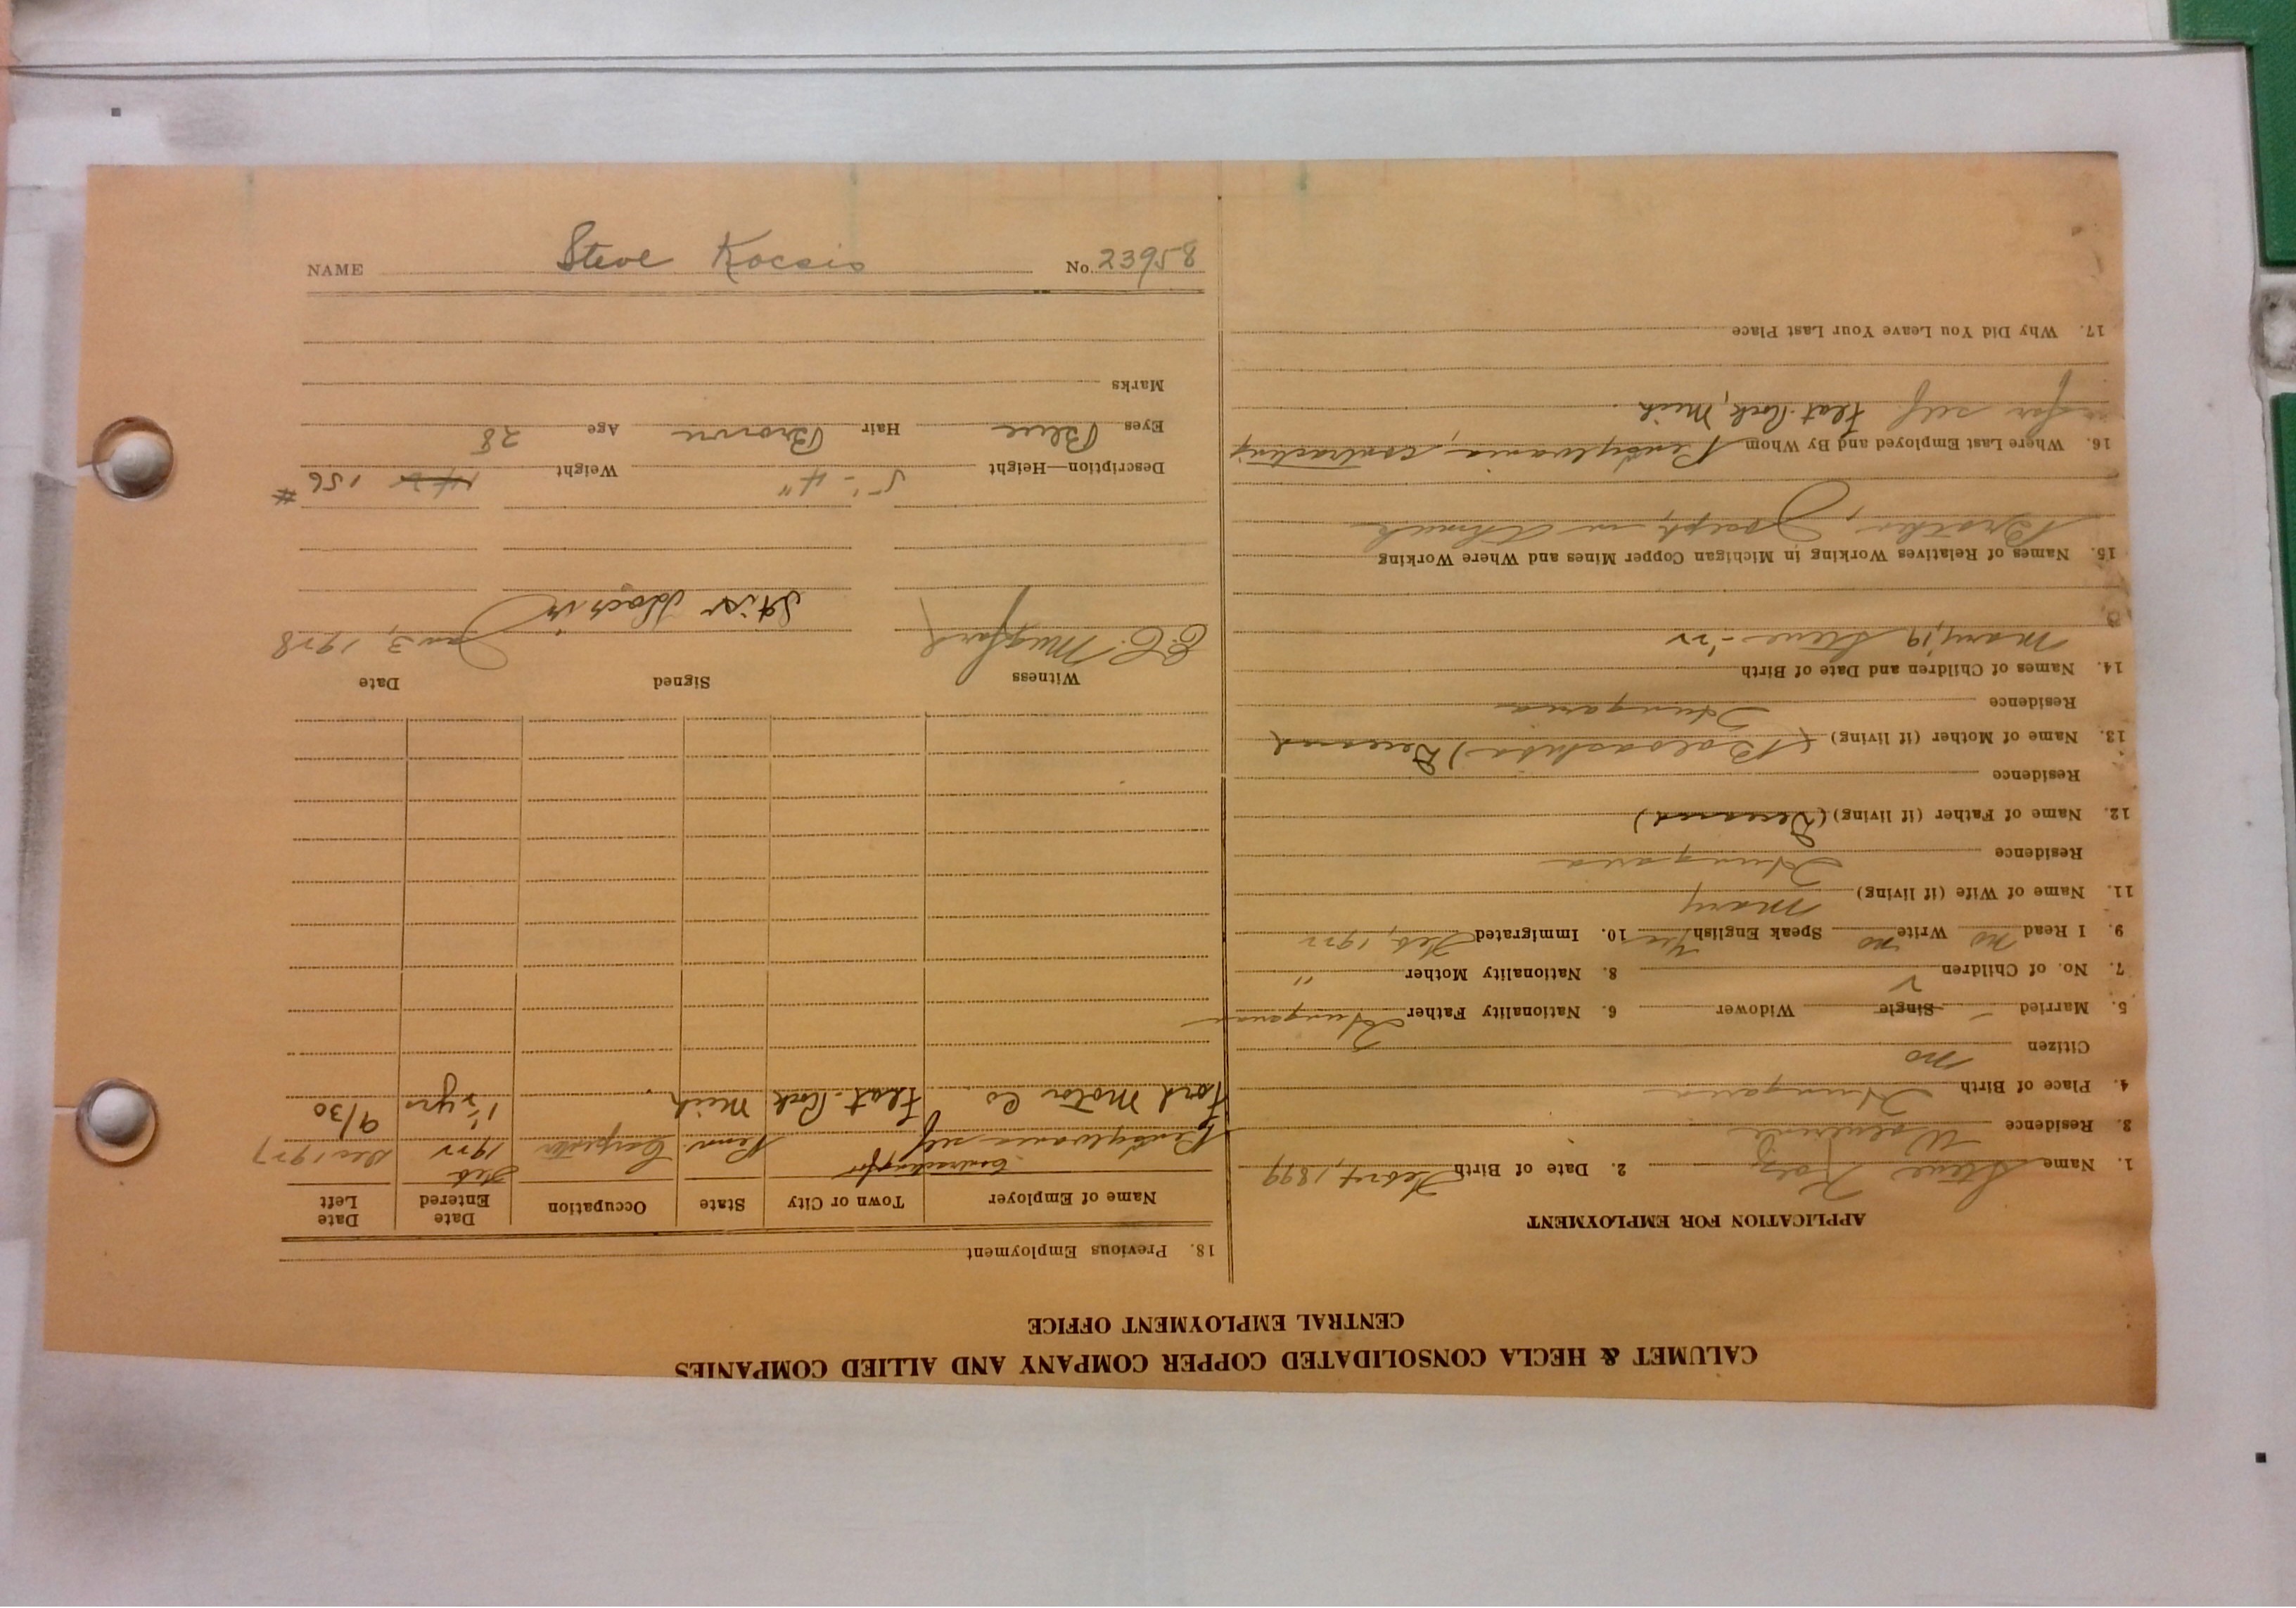 CALUMET & HECLA CONSOLIDATED COPPER COMPANY AND ALLIED COMPANIES
CENTRAL EMPLOYMENT OFFICE
APPLICATION FOR EMPLOYMENT
1. Name Steve 2. Date of Birth 1899
3. Residence Wolverine
4. Place of Birth Hungaria
Citizen no
5. Married Single Widower 6. Nationality Father Hungarian
7. No. of Children 2 8. Nationality Mother "
9. I Read no Write no Speak English Yes 10. Immigrated Feb, 1922
11. Name of Wife (if living) Mary
Residence Hungaria
12. Name of Father (if living) (Deceased)
Residence
13. Name of Mother (if living) Deceased
Residence Hungaria
14. Names of Children and Date of Birth
Mary, 19 Steve - '22
15. Names of Relatives Working in Michigan Copper Mines and Where Working
Brother, Joseph, in Ahmeek
16. Where Last Employed and By Whom Pensylvania, contracting
for self. Flat-Rock, Mich.
17. Why Did You Leave Your Last Place
18. Previous Employment
Name of Employer Town or City State Occupation Date Entered Date Left
Pensylvania self contracting for Penn. Carpenter Feb 1922 Dec 1927
Ford Motor Co Flat-Rock Mich 1½ yrs 9/30
Witness Signed Date
E.C. Mugford Jan 3, 1928
Description—Height 5'-4" Weight 156 #
Eyes Blue Hair Brown Age 28
Marks
NAME Steve Kocsis No. 23958